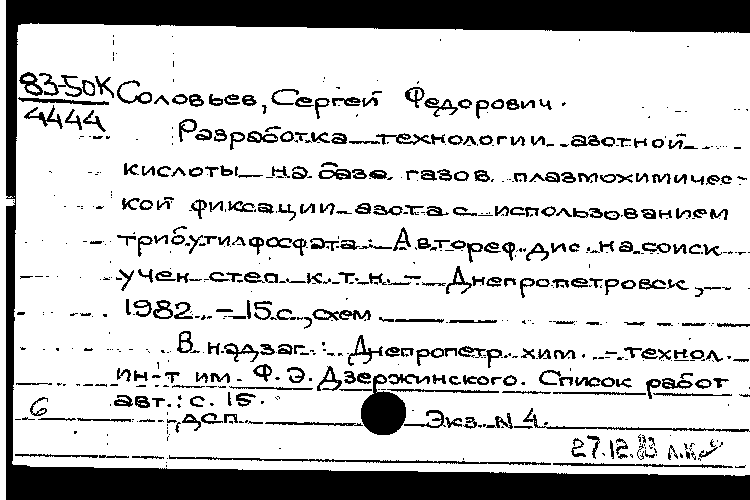 83-50К
4444
Соловьев, Сергей Федорович.
Разработка технологии азотной
кислоты на базе газов плазмохимичес-
кой фиксации азота с использованием
трибутилфосфата: Автореф. дис. на соиск
учен. степ. к. т. н. – Днепропетровск,
1982. – 15 с., схем.
В надзаг.: Днепропетр. хим. – технол.
ин-т им. Ф. Э. Дзержинского. Список работ
авт.: с. 15.
6
ДСП
Экз. N 4.
27.12.83